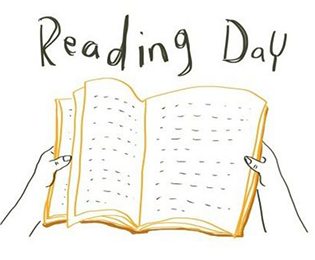 Reading Day